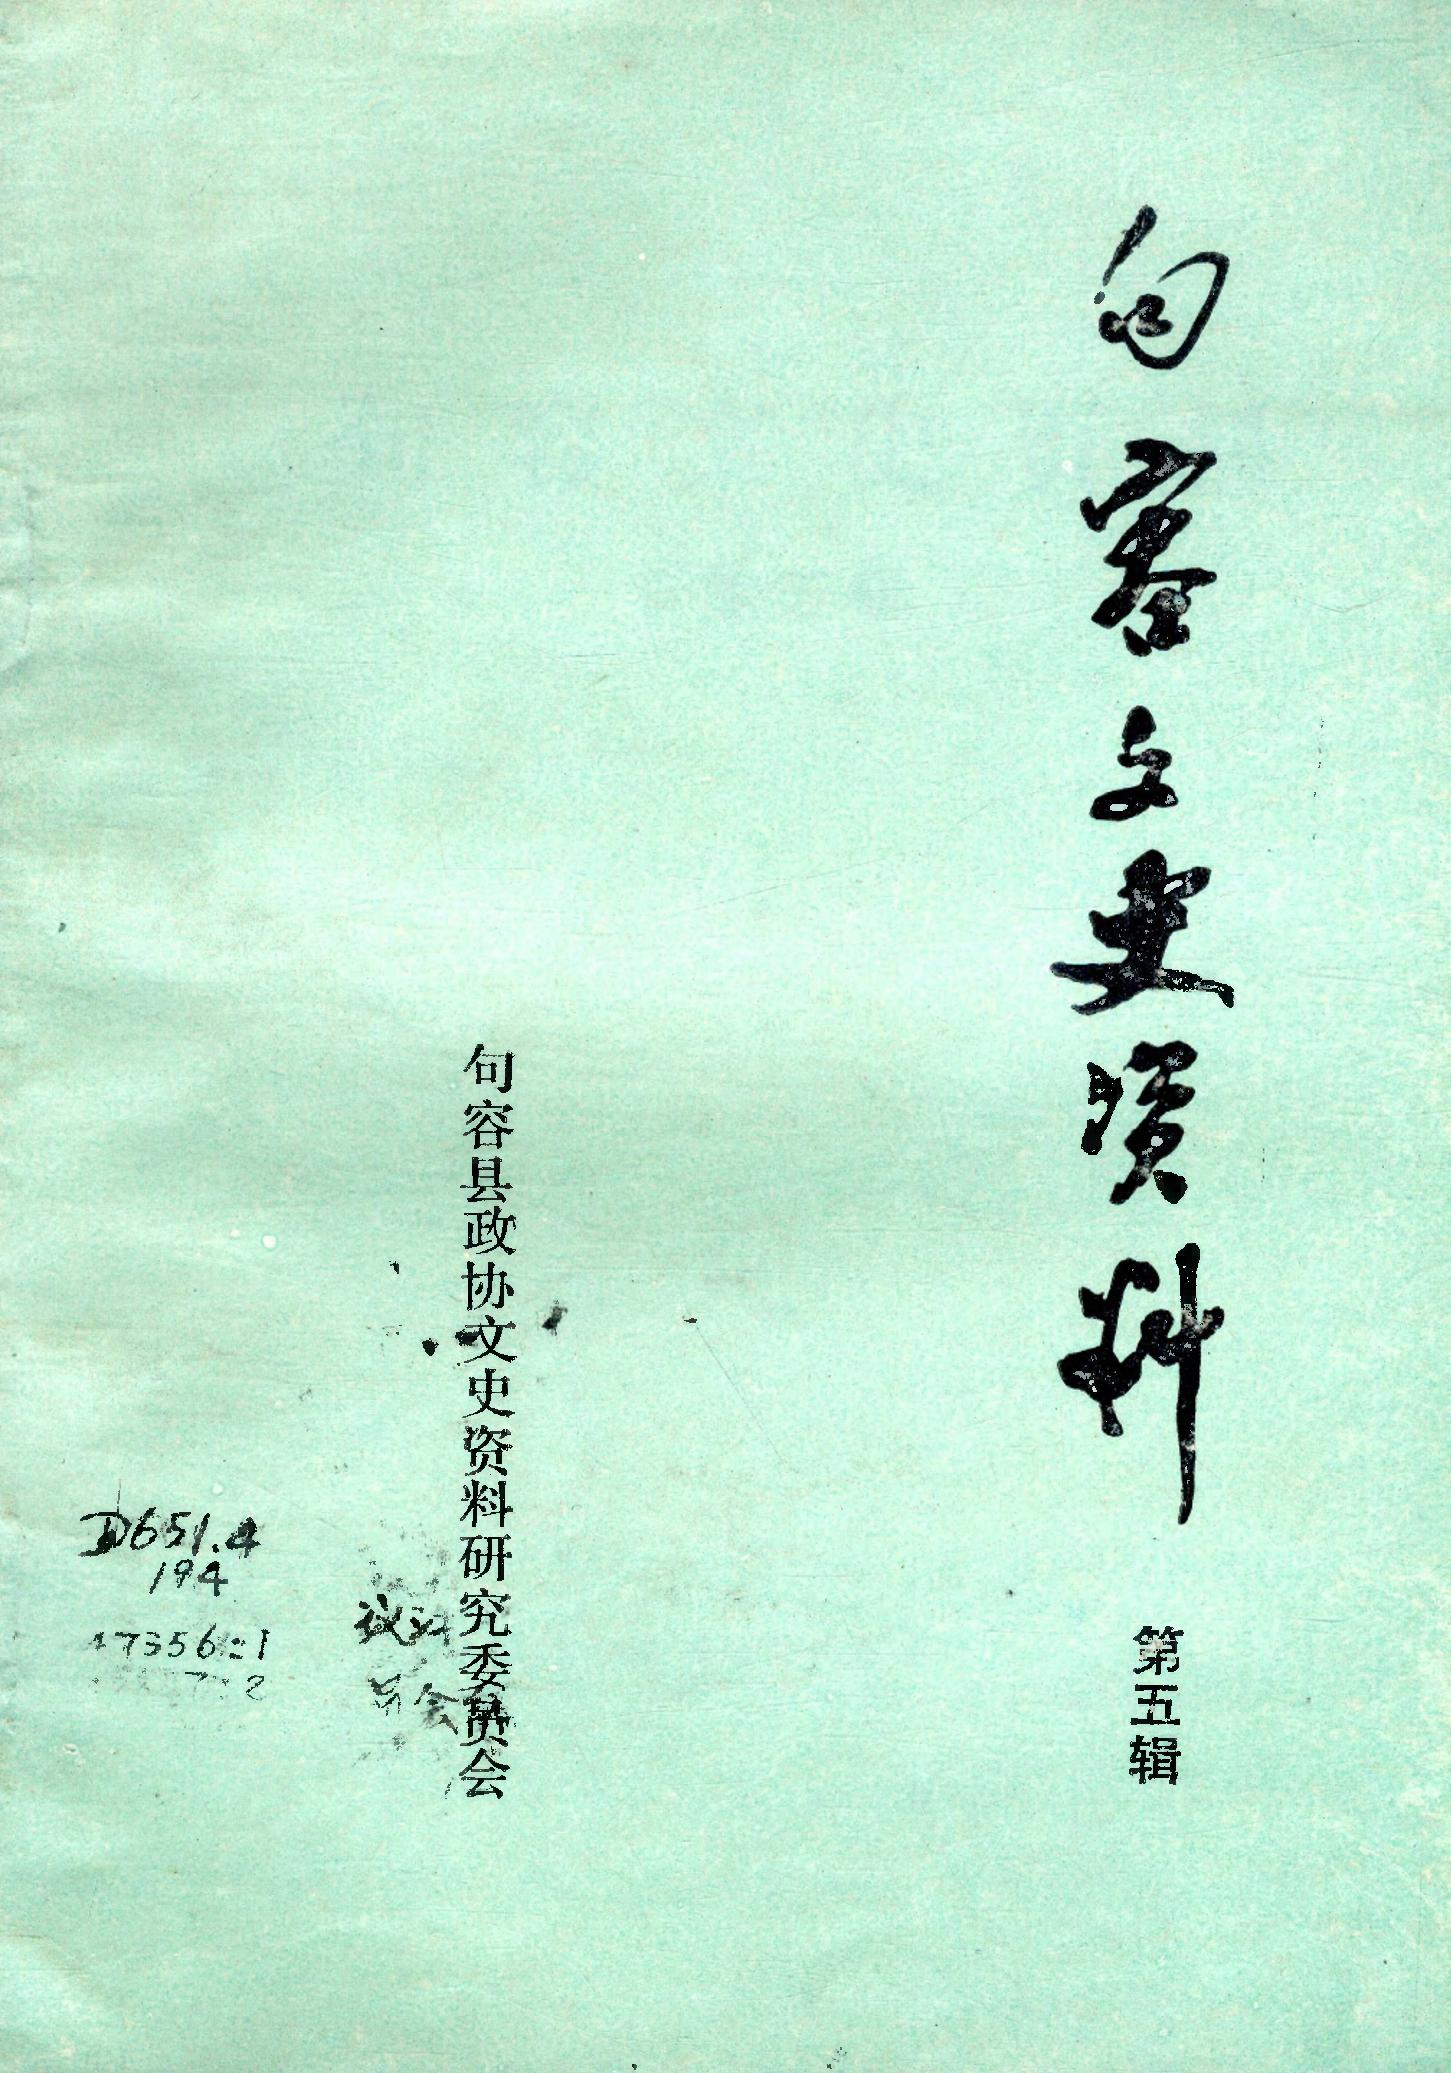 句容文史资料
第五辑
句容县政协文史资料研究委员会
D651.4
194
17356:1